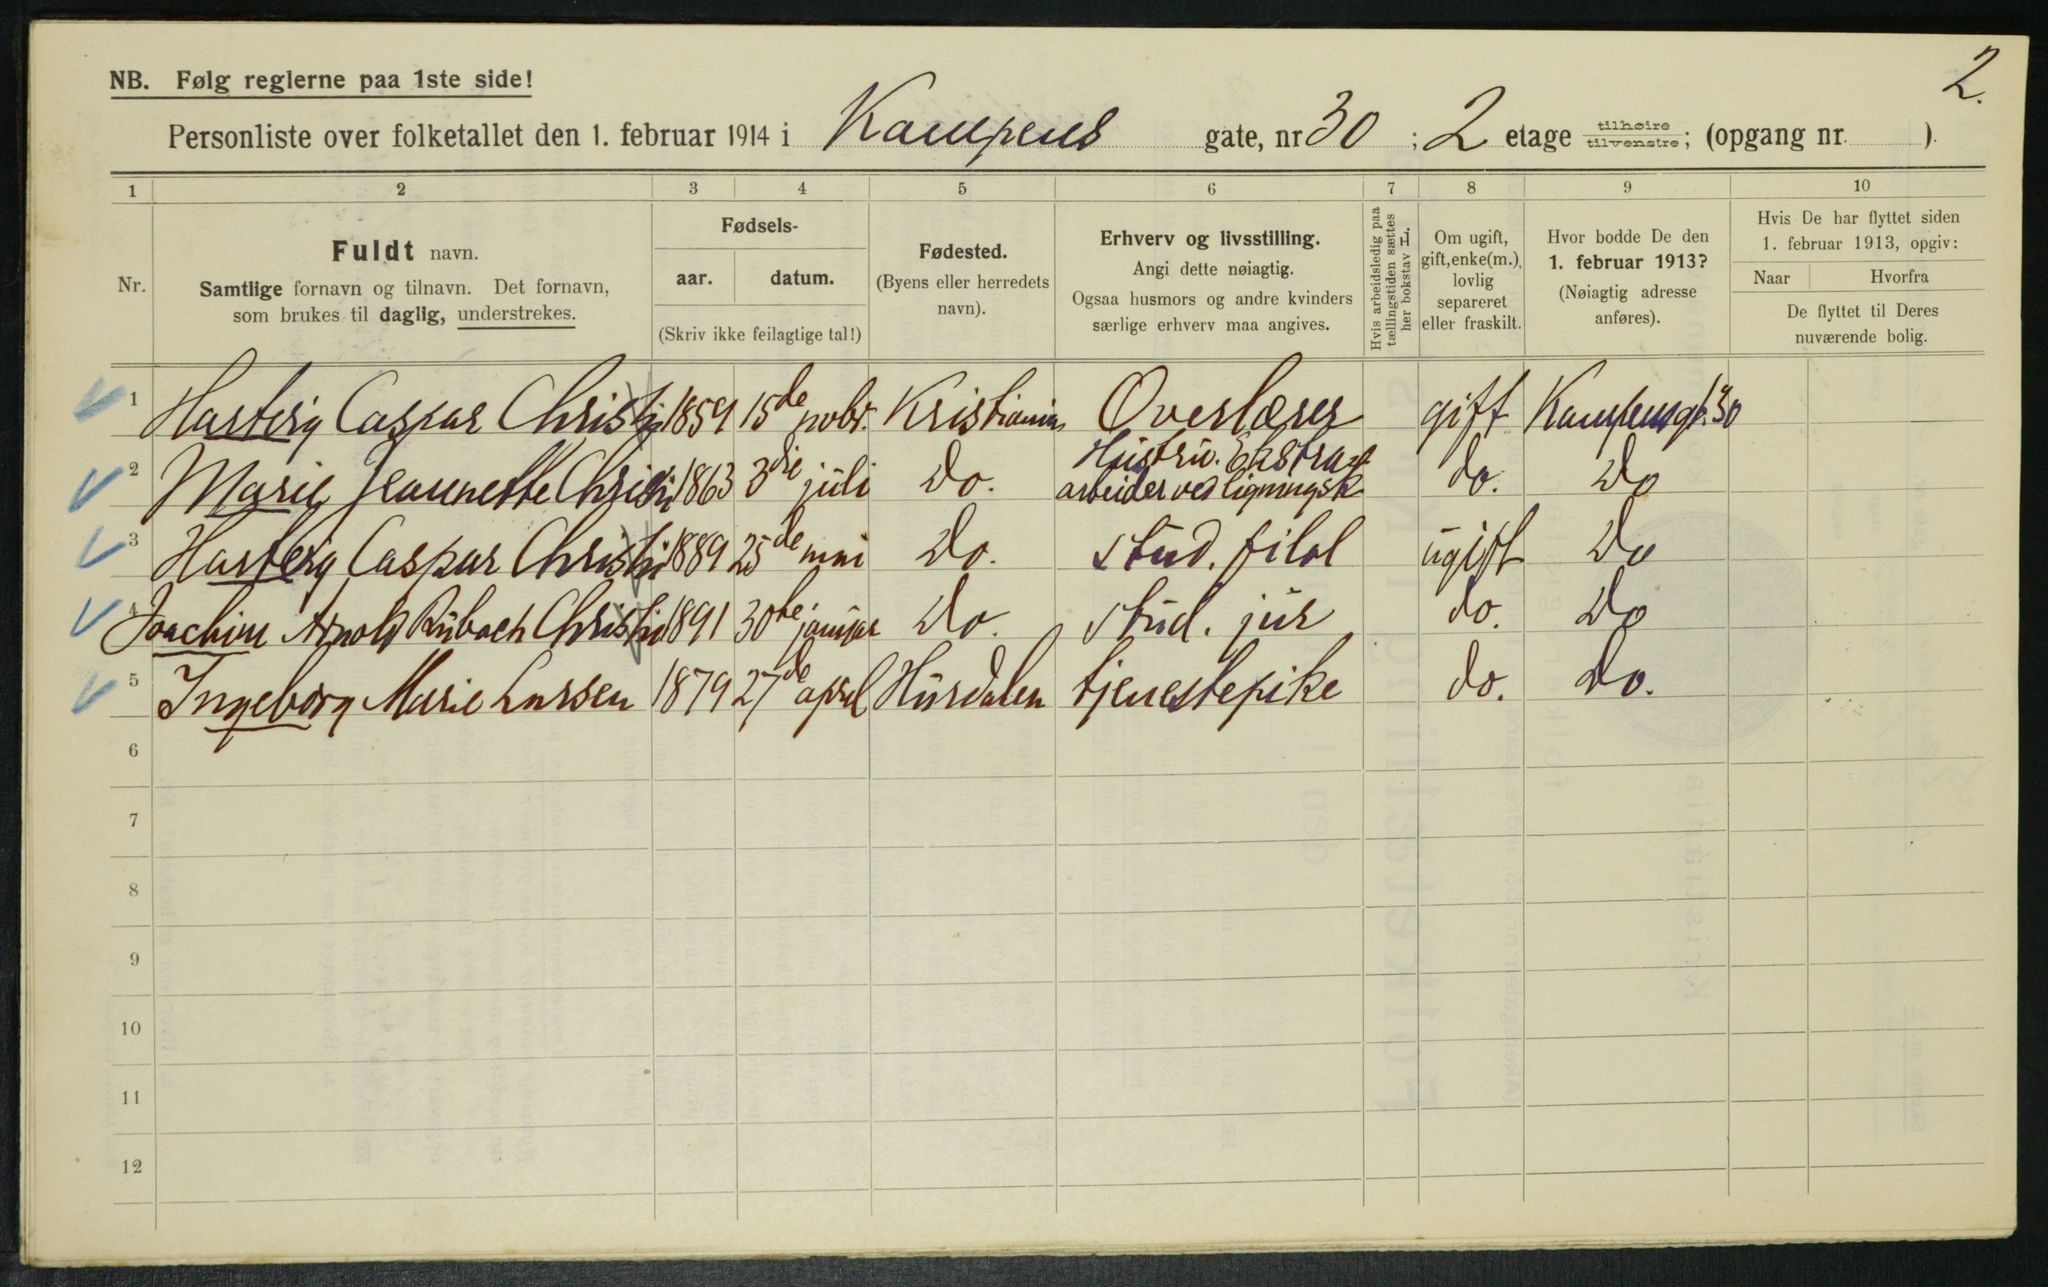 2.
NB. Følg reglerne paa 1ste side!
Personliste over folketallet den 1. februar 1914 i Kampens gate, nr 30 ; 2 etage tilhøire tilvenstre; (opgang nr. ).
1 2 3 4 5 6 7 8 9 10
Nr.
Fuldt navn.
Samtlige fornavn og tilnavn. Det fornavn,
som brukes til daglig, understrekes.
Fødsels-
aar. datum.
(Skriv ikke feilagtige tal!)
Fødested.
(Byens eller herredets
navn).
Erhverv og livsstilling.
Angi dette nøiagtig.
Ogsaa husmors og andre kvinders
særlige erhverv maa angives.
Hvis arbeidsledig paa
tællingstiden sættes
her bokstav L.
Om ugift,
gift, enke(m.),
lovlig
separeret
eller fraskilt.
Hvor bodde De den
1. februar 1913?
(Nøiagtig adresse
anføres).
Hvis De har flyttet siden
1. februar 1913, opgiv:
Naar Hvorfra
De flyttet til Deres
nuværende bolig.
1 Caspar 1859 15de novbr. Kristiania Overlærer gift Kampensgt. 30
2 Marie Jeannette 1863 3die juli Do. Hustru. Ekstra-
arbeider ved ligningsk do. Do
3 Caspar 1889 25de mai Do. stud. filol ugift Do
4 Joachim Arnold Rubach 1891 30te januar Do. stud. jur do. Do
5 Ingeborg Marie Larsen 1879 27de april Hurdalen tjenestepike do. Do.
6
7
8
9
10
11
12